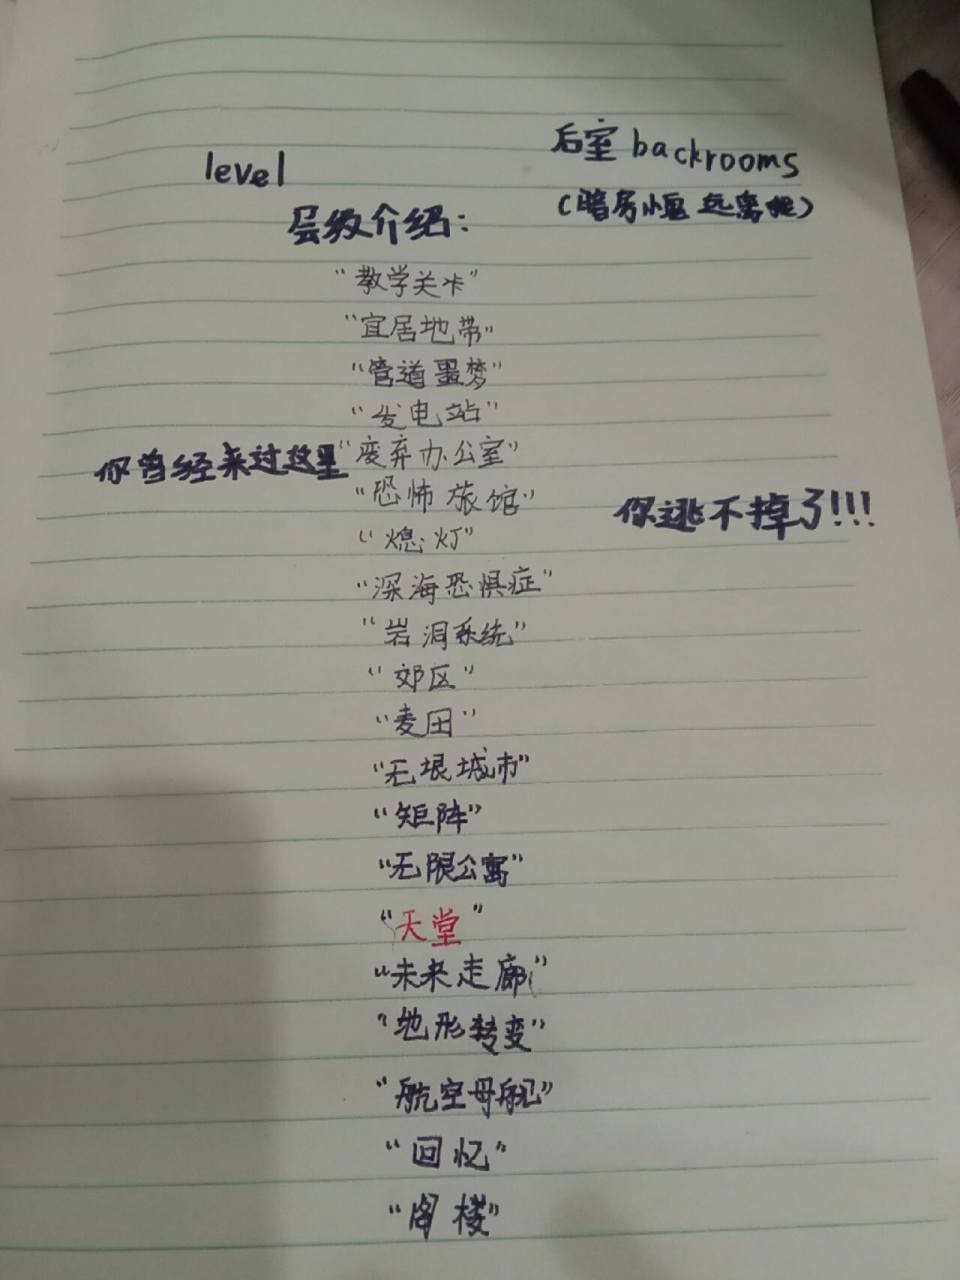 后室 backrooms
level
(暗房小窗 远离它)
层级介绍:
"教学关卡"
"宜居地带"
"管道噩梦"
"发电站"
"废弃办公室"
你曾经来过这里
"恐怖旅馆"
你逃不掉了!!!
"熄灯"
"深海恐惧症"
"岩洞系统"
"郊区"
"麦田"
"无垠城市"
"矩阵"
"无限公寓"
"天堂"
"未来走廊"
"地形转变"
"航空母舰"
"回忆"
"阁楼"